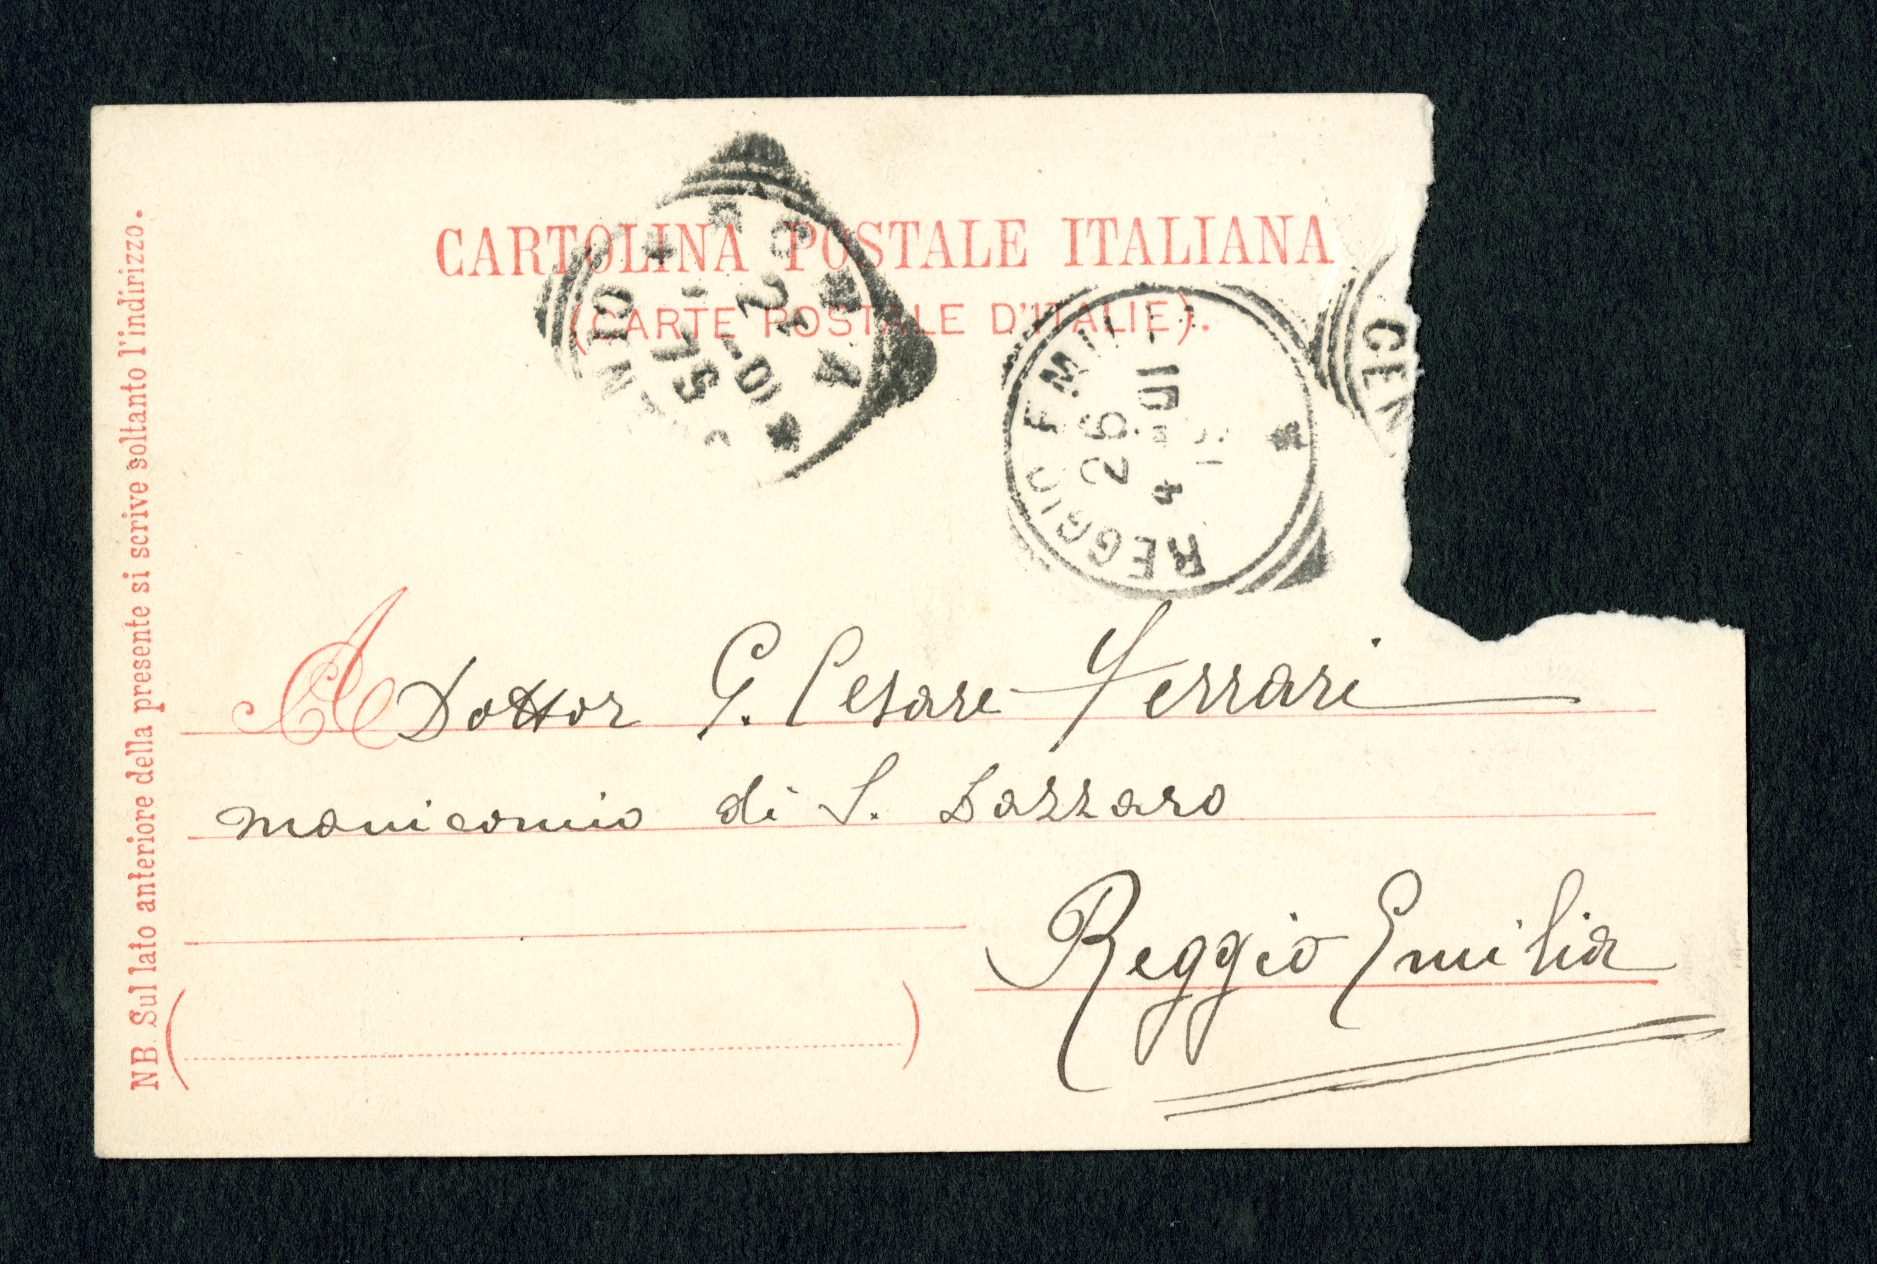 CARTOLINA POSTALE ITALIANA
(CARTE POSTALE D'ITALIE).
REGGIO EMILI
26
DI
4
CEN
A Dottor G. Cesare Ferrari
manicomio di S. Lazzaro
Reggio Emilia
NB. Sul lato anteriore della presente si scrive soltanto l'indirizzo.